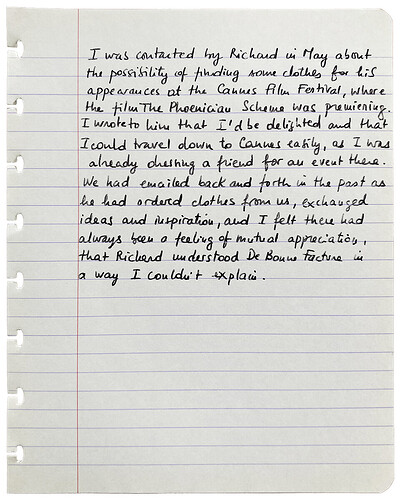 I was contacted by Richard in May about
the possibility of finding some clothes for his
appearances at the Cannes Film Festival, where
the film The Phoenician Scheme was premiering.
I wrote to him that I'd be delighted and that
I could travel down to Cannes easily, as I was
already dressing a friend for an event there.
We had emailed back and forth in the past as
he had ordered clothes from us, exchanged
ideas and inspiration, and I felt there had
always been a feeling of mutual appreciation,
that Richard understood De Bonne Facture in
a way I couldn't explain.